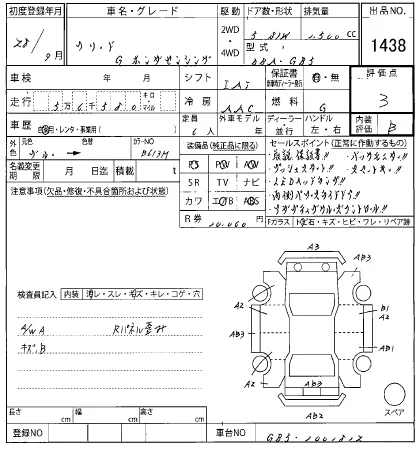 初度登録年月
車名・グレード
駆動
ドア数・形状
排気量
出品NO.
28/9月
フリード
2WD
4WD
5
1,500 cc
1438
G ホンダセンシング
型式
DBA-GB5
車検
年 月
シフト
IAT
保証書
有・無
評価点
3
走行
56,580
キロ
マイル
冷房
AAC
燃料
G
車歴
自家用・レンタ・事業用( )
定員
6人
外車モデル
年
ディーラー
並行
ハンドル
左・右
内装評価
B
外色
元色
色替
カラーNO
ブルー
B613M
装備品(純正品に限る)
セールスポイント(正常に作動するもの)
名義変更期限
月 日
積載
t
PS PW AW
SR TV ナビ
カワ エアB ABS
R券
10,460
・取説、保証書!!
・バックモニター!!
・プッシュスタート!!
・スマートキー!!
・LEDヘッドランプ!!
・両側パワースライドドア!!
注意事項(欠品・修復・不具合箇所および状態)
Fガラス
飛石・キズ・ヒビ・ワレ・リペア跡
検査員記入
内装
汚レ・スレ・キズ・キレ・コゲ・穴
A/W A
Rパネル歪み
キズ.B
A3
AB3
A2
A2
B1
AB3
A2
AB1
A2
A2
AB3
AB2
スペア
長さ
cm
幅
cm
高さ
cm
登録NO
車台NO